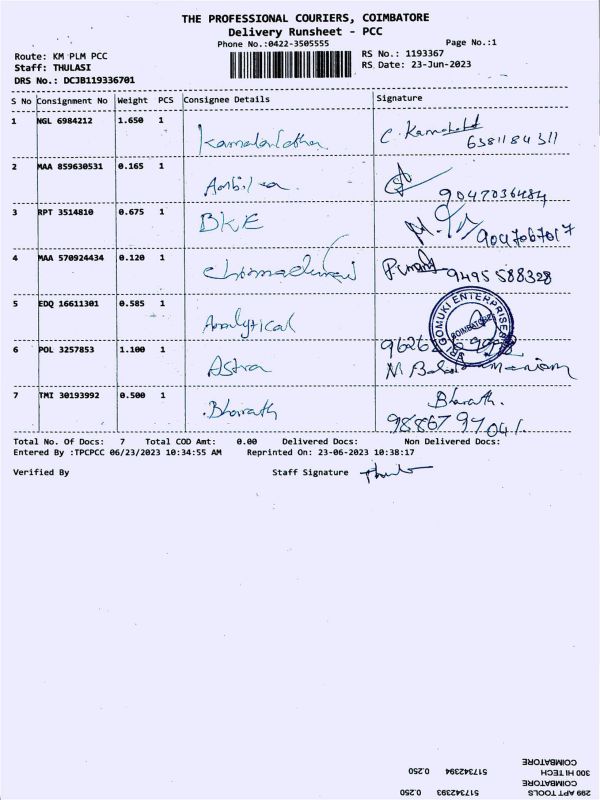 THE PROFESSIONAL COURIERS, COIMBATORE
Delivery Runsheet - PCC
Phone No.:0422-3505555 Page No.:1
Route: KM PLM PCC RS No.: 1193367
Staff: THULASI RS Date: 23-Jun-2023
DRS No.: DCJB119336701
S No Consignment No Weight PCS Consignee Details Signature
1 NGL 6984212 1.650 1 Kamalalatha C. Kamalatha
6381184311
2 MAA 859630531 0.165 1
9047036484
3 RPT 3514810 0.675 1 BKE
9047067017
4 MAA 570924434 0.120 1
9495588328
5 EDQ 16611301 0.585 1 Analytical SRI GOMUKI ENTERPRISES
COIMBATORE
6 POL 3257853 1.100 1 Astra
7 TMI 30193992 0.500 1 Bharath Bharath.
9886797041.
Total No. Of Docs: 7 Total COD Amt: 0.00 Delivered Docs: Non Delivered Docs:
Entered By :TPCPCC 06/23/2023 10:34:55 AM Reprinted On: 23-06-2023 10:38:17
Verified By Staff Signature
299 APT TOOLS 517342393 0.250
COIMBATORE
300 HI TECH 517342394 0.250
COIMBATORE